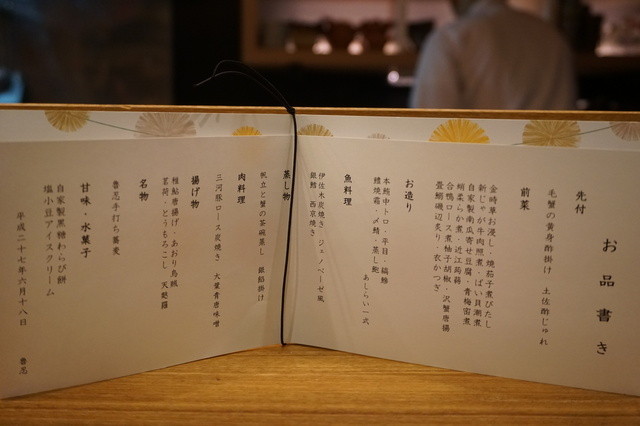 お品書き
先付
毛蟹の黄身酢掛け　土佐酢じゅれ
前菜
金時草お浸し・焼茄子煮びたし
新じゃが牛肉照煮・ばい貝潮煮
自家製南瓜寄せ豆腐・青梅蜜煮
蛸柔らか煮・近江蒟蒻
合鴨ロース煮柚子胡椒・沢蟹唐揚
畳鰯磯辺炙り・衣かつぎ
お造り
本鮪中トロ・平目・縞鯵
鱧焼霜・〆鯖・蒸し鮑　あしらい一式
魚料理
伊佐木炭焼き・ジェノベーゼ風
銀鱈・西京焼き
蒸し物
帆立と蟹の茶碗蒸し　銀餡掛け
肉料理
三河豚ロース炭焼き　大葉青唐味噌
揚げ物
稚鮎唐揚げ・あおり烏賊
茗荷・とうもろこし　天麩羅
名物
魯忍手打ち蕎麦
甘味・水菓子
自家製黒糖わらび餅
塩小豆アイスクリーム
平成二十七年六月十八日　魯忍